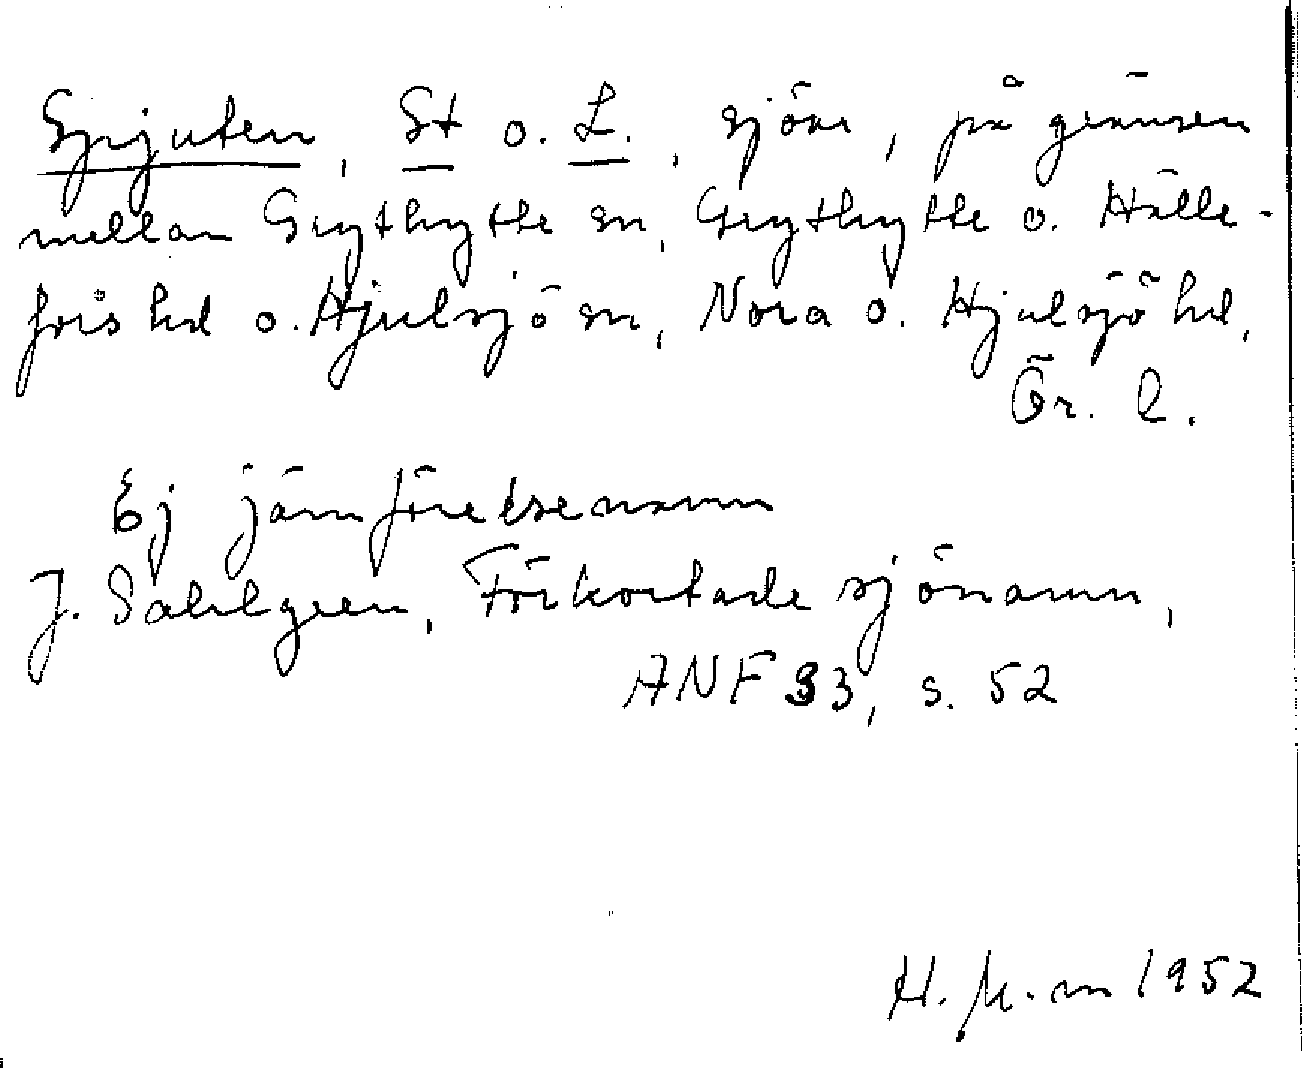 Spjuten, St o. L., sjöar, på gränsen
mellan Grythytte sn, Grythytte o. Hälle-
fors hd o. Hjulsjö sn, Nora o. Hjulsjö hd,
Ör. l.
Ej jämförelsenamn
J. Sahlgren, Förkortade sjönamn,
ANF 33, s. 52
H. M-m 1952